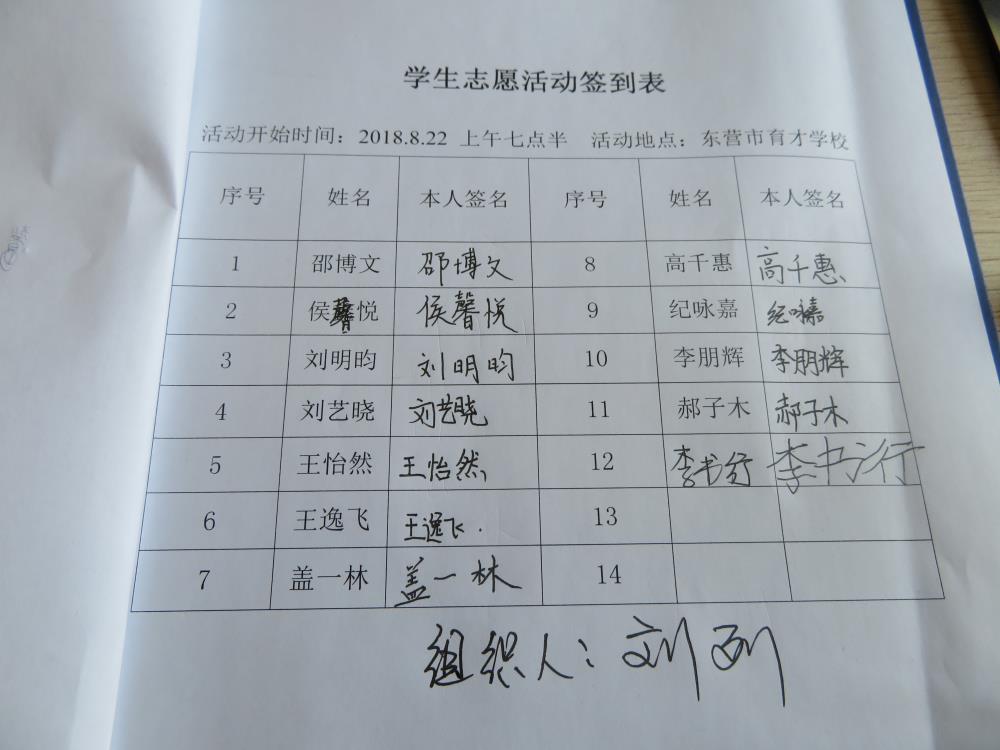 学生志愿活动签到表
活动开始时间：2018.8.22 上午七点半 活动地点：东营市育才学校
序号 姓名 本人签名 序号 姓名 本人签名
1 邵博文 邵博文 8 高千惠 高千惠
2 侯馨悦 侯馨悦 9 纪咏嘉 纪咏嘉
3 刘明昀 刘明昀 10 李朋辉 李朋辉
4 刘艺晓 刘艺晓 11 郝子木 郝子木
5 王怡然 王怡然 12 李书行 李书行
6 王逸飞 王逸飞 13
7 盖一林 盖一林 14
组织人：刘